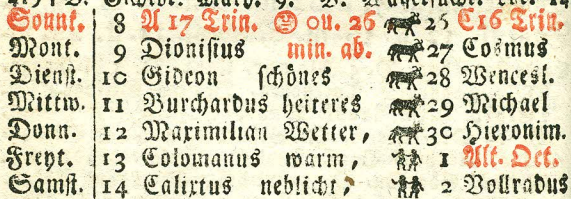 Sonnt. 8 A 17 Trin. 0u. 26 25 C16 Trin.
Mont. 9 Dionisius min. ab. 27 Cosmus
Dienst. 10 Gideon schönes 28 Wencesl.
Mittw. 11 Burchardus heiteres 29 Michael
Donn. 12 Maximilian Wetter, 30 Hieronim.
Freyt. 13 Colomanus warm, 1 Alt. Oct.
Samst. 14 Calixtus neblicht, 2 Vollradus